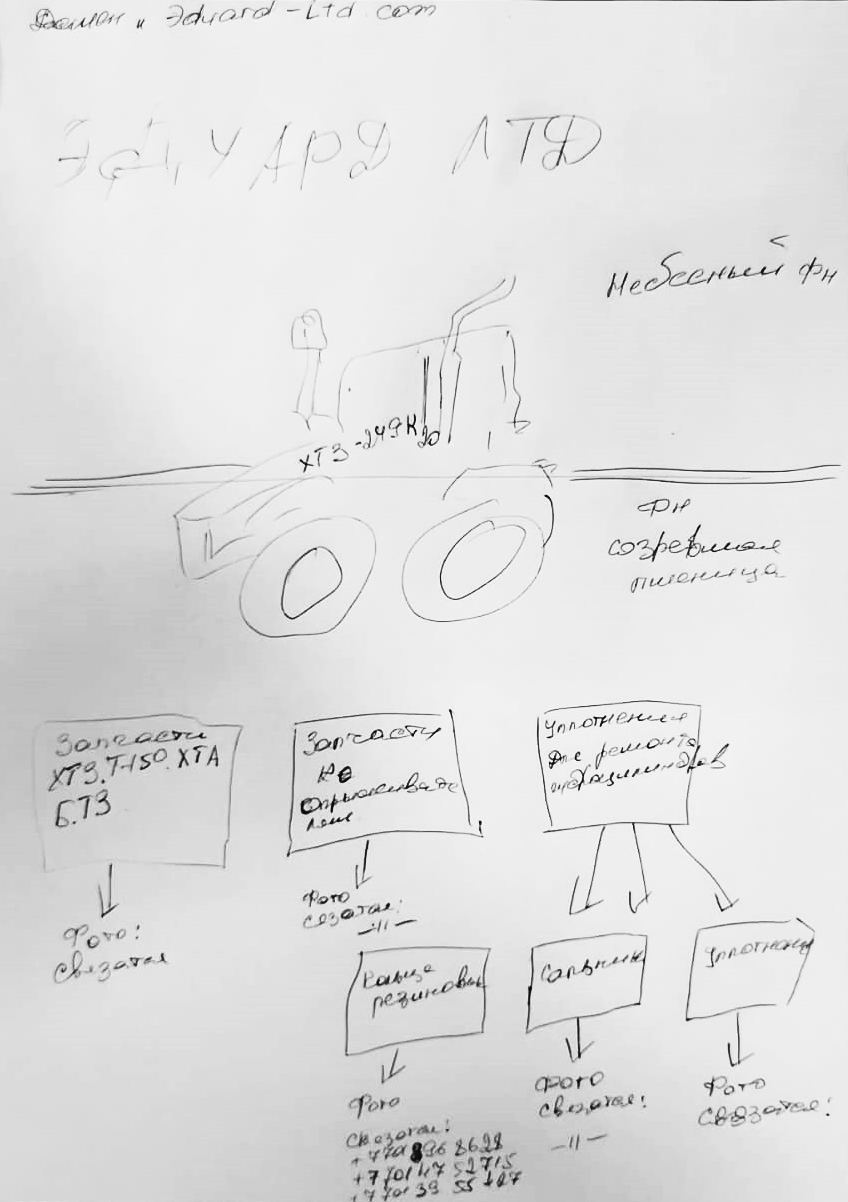 Домен " Эduard-Ltd.com
ЭДУАРД ЛТД
Небесный фн
ХТЗ-249К20
фн
созревшая
пшеница
Запчасти
ХТЗ.Т-150.ХТА
БТЗ
Фото:
связатся
Запчасти
на
опрыскивате
лям
Фото
сезатся:
–"–
Уплотнения
Для ремонта
гидроцилиндров
Кольца
резиновые
Фото
связатся:
+7701 396 8628
+7 701 47 52715
+7 701 39 55 427
Сальник
Фото
связатся:
–"–
Уплотнен
Фото
связатся: